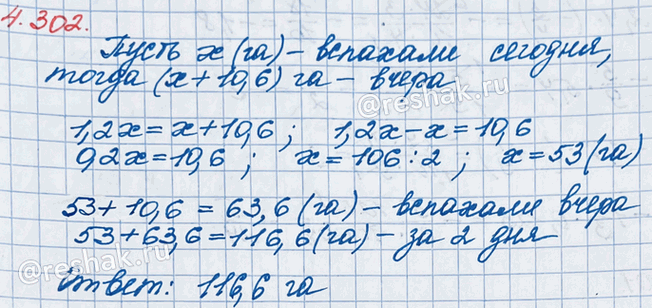 4.302.
Пусть x (га) – вспахали сегодня,
тогда (x + 10,6) га – вчера
1,2x = x + 10,6 ; 1,2x – x = 10,6
0,2x = 10,6 ; x = 106 : 2 ; x = 53 (га)
53 + 10,6 = 63,6 (га) – вспахали вчера
53 + 63,6 = 116,6 (га) – за 2 дня
Ответ: 116,6 га
©reshak.ru
©reshak.ru
©reshak.ru